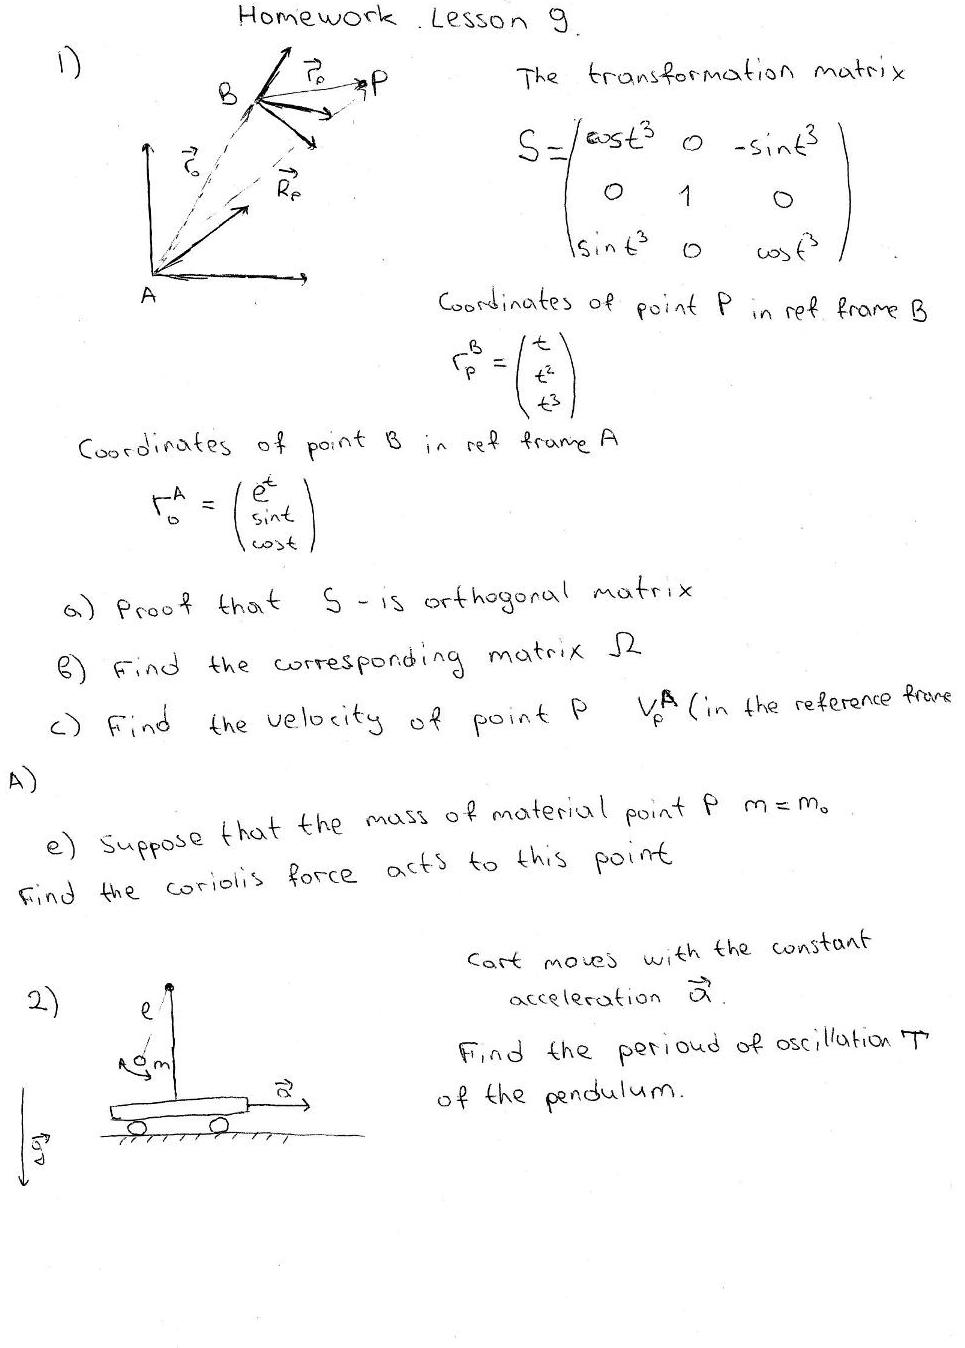 Homework. Lesson 9.
1)
B r⃗ₚ P
r⃗₀
R⃗ₚ
A
The transformation matrix
S = ( cost³ 0 -sint³
0 1 0
sint³ 0 cost³ )
Coordinates of point P in ref. frame B
rₚᴮ = ( t
t²
t³ )
Coordinates of point B in ref frame A
r₀ᴬ = ( eᵗ
sint
cost )
a) Proof that S - is orthogonal matrix
б) Find the corresponding matrix Ω
c) Find the velocity of point P Vₚᴬ (in the reference frame
A)
e) Suppose that the mass of material point P m = m₀.
Find the coriolis force acts to this point
2)
Cart moves with the constant
acceleration a⃗.
Find the perioud of oscillation T
of the pendulum.
e
m
a⃗
g⃗